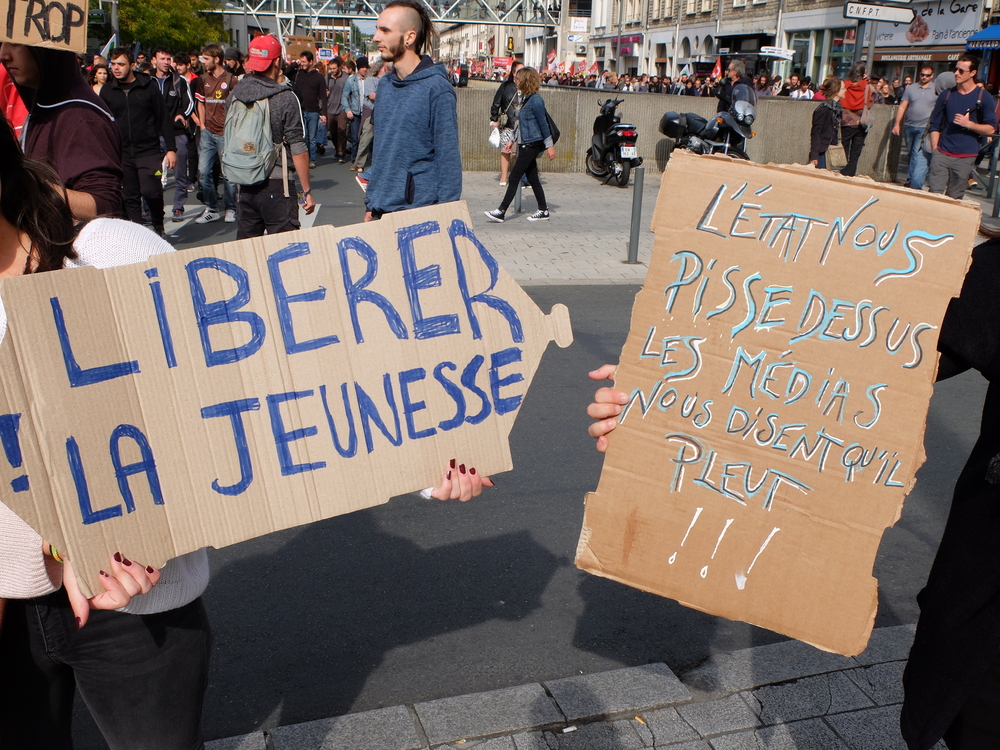 TROP
CNFPT
de la Gare
Pain à l'ancienne
LiBERER
LA JEUNESSE
!
L'ÉTAT NOUS
PISSE DESSUS
LES MÉDiAS
NOUS DiSENT QU'iL
PLEUT
!!!